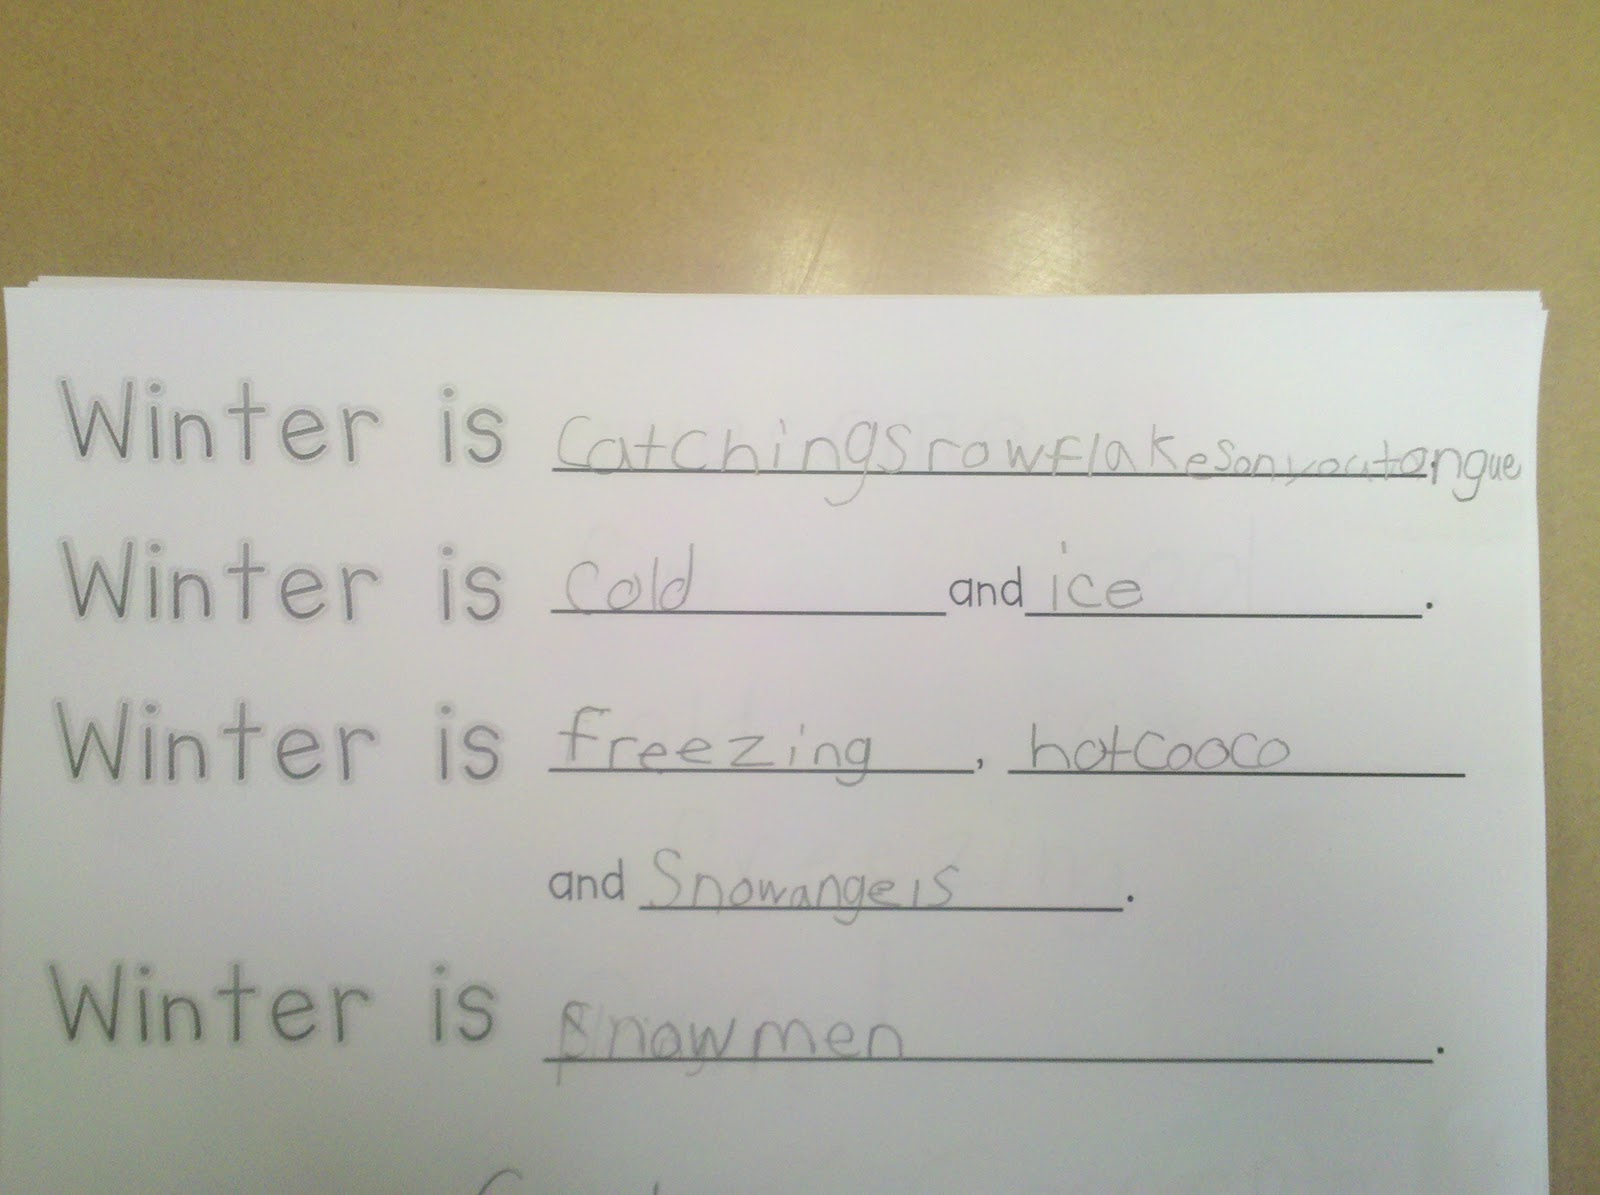 Winter is CatchingSrowflakesonyoutongue
Winter is cold and ice.
Winter is freezing, hotcooco
and Snowangels.
Winter is snowmen.